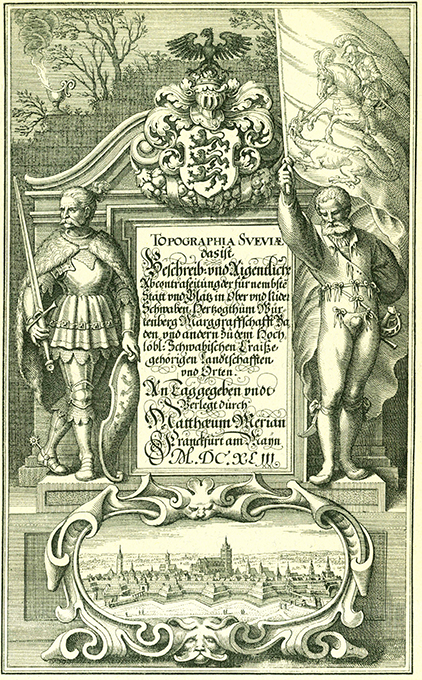 TOPOGRAPHIA SVEVIÆ
das ist
Beschreib: vnd Aigentliche
Abcontrafeitung der fürnembste
Stätt vnd Plätz in Ober vnd Nider
Schwaben, Hertzogthum Wür-
tenberg Marggraffschafft Ba
den, vnd andern zu dem Hoch
lobl: Schwabischen Craiße
gehörigen Landtschafften
vnd Orten.
An Tag gegeben vndt
Verlegt durch
Matthæum Merian
Franckfurt am Mayn
M. DC. XLIII